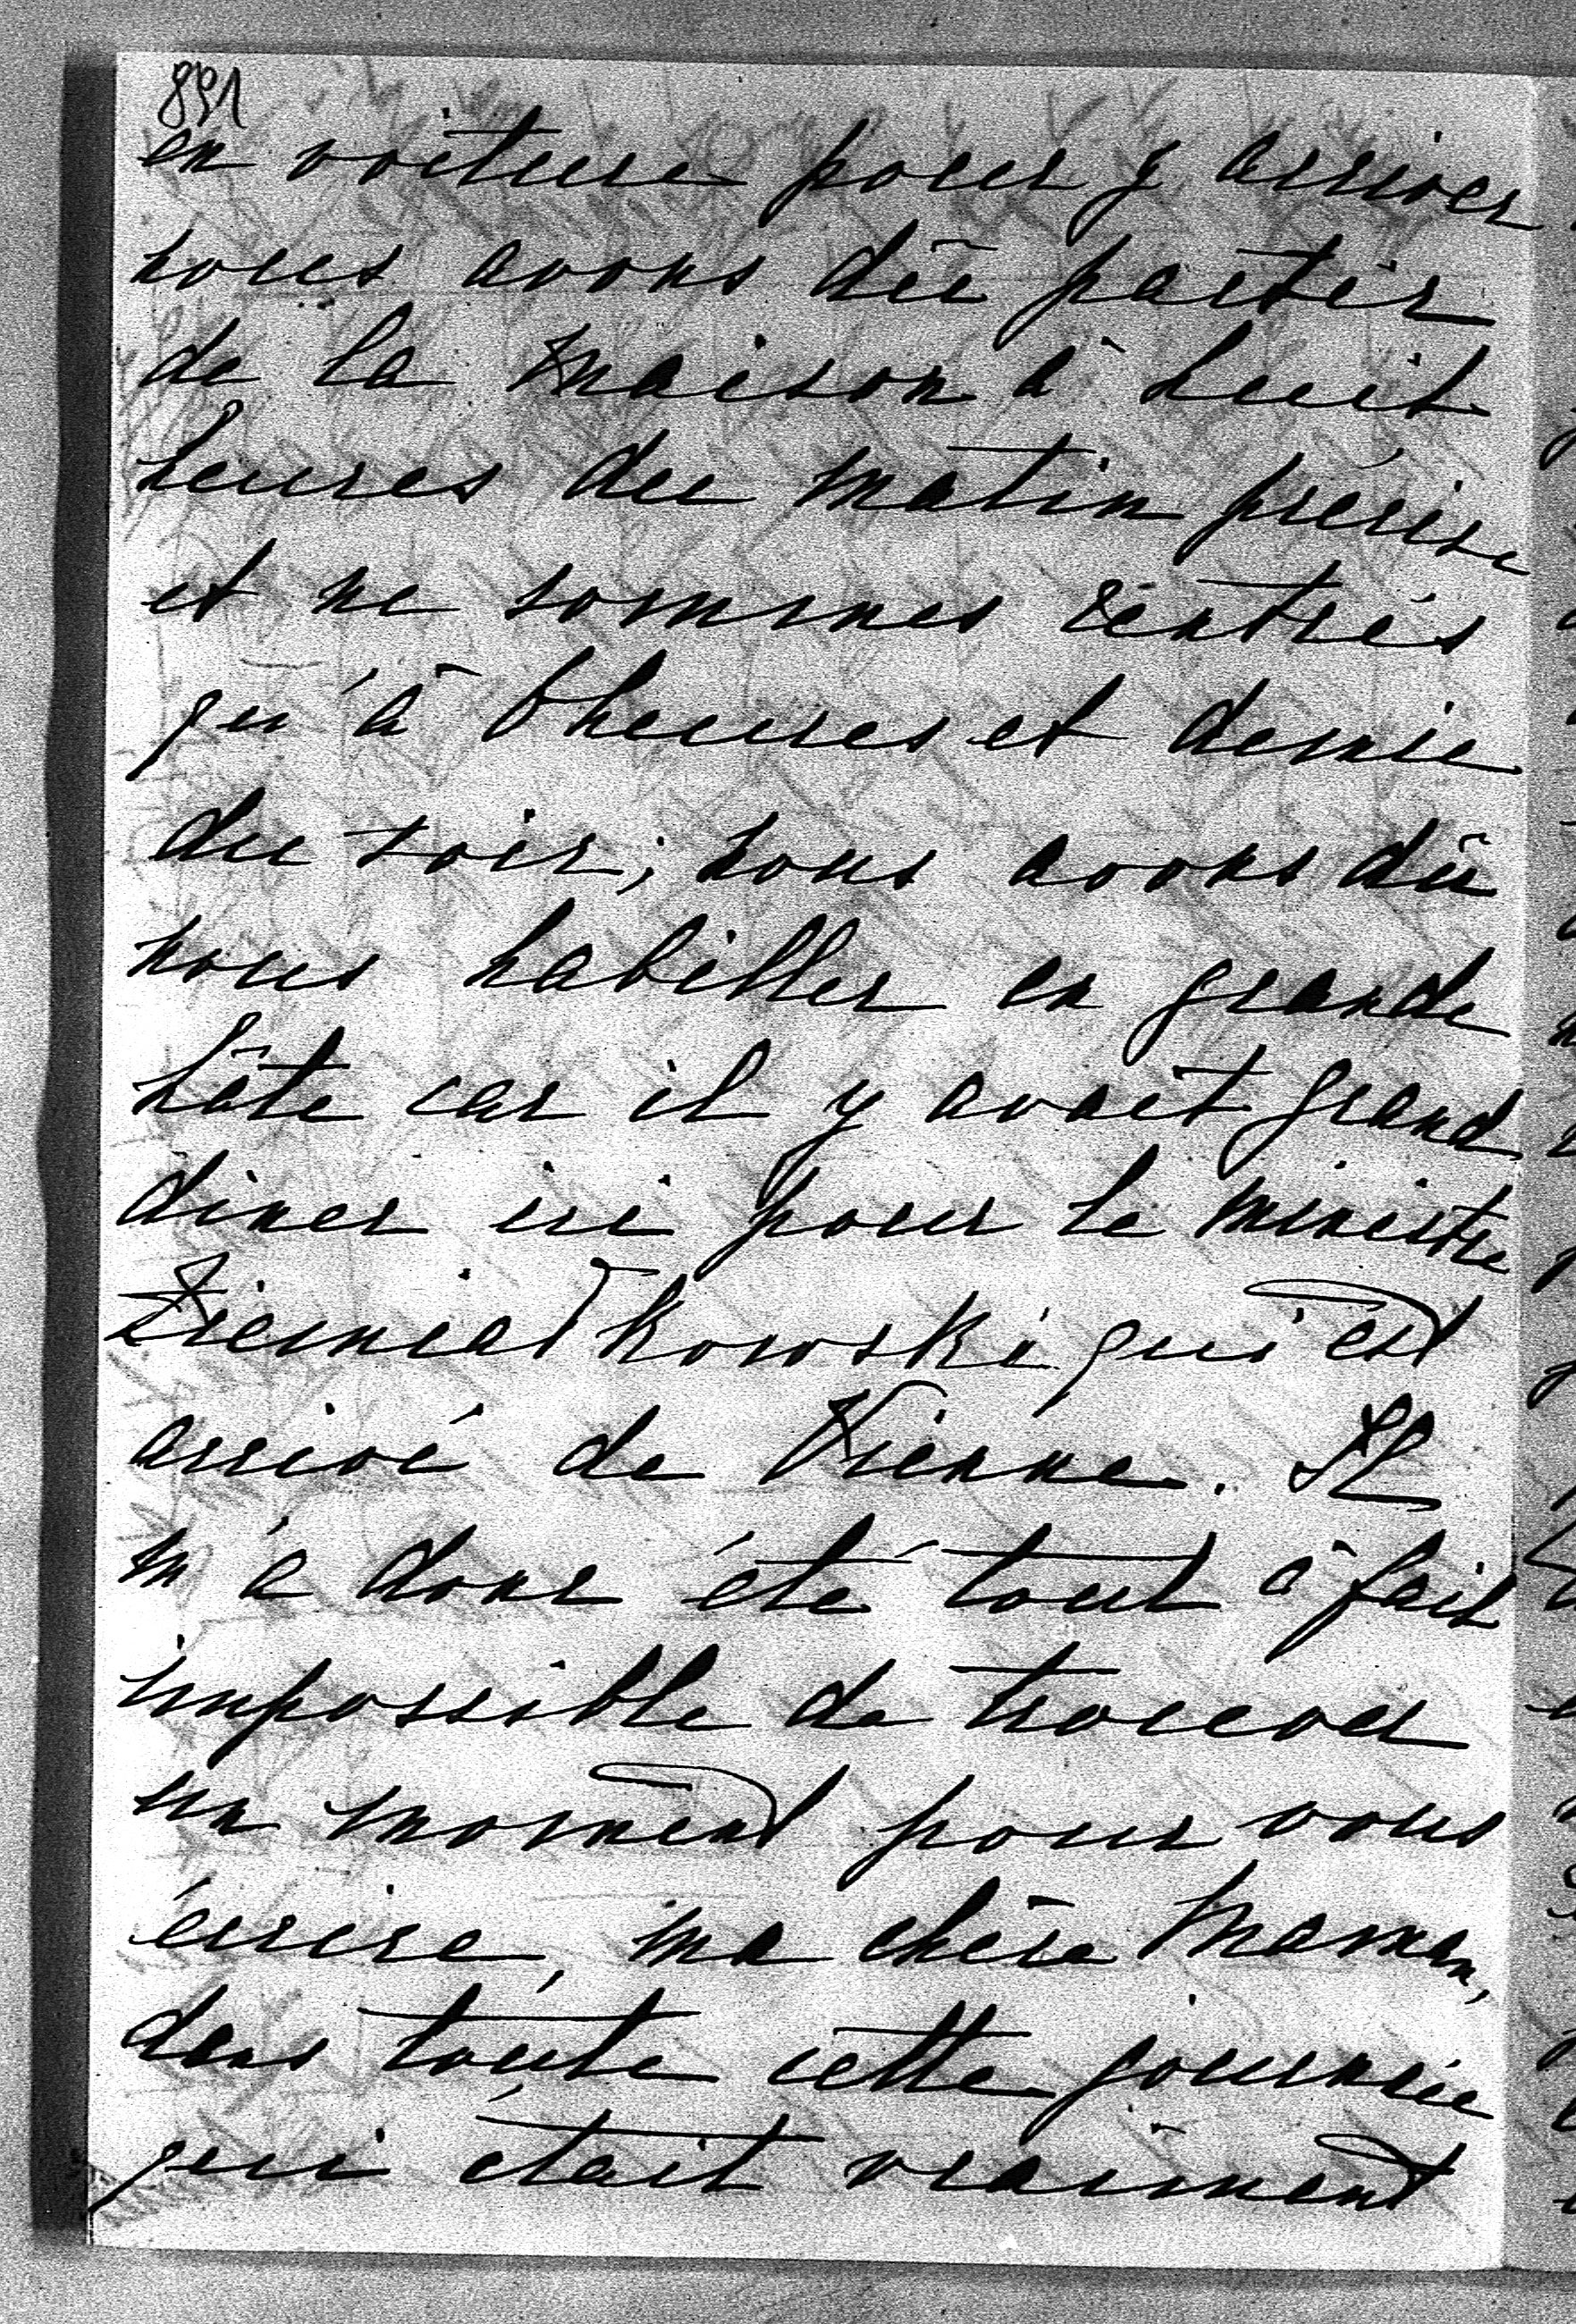 891
en voiture pour y arriver
nous avons dû partir
de la maison à huit
heures du matin précise
et ne sommes rentrés
qu'à 6 heures et demie
du soir; nous avons dû
nous habiller en grande
hâte car il y avait grand
diner ici pour le ministre
Ziemiatkowski qui est
arrivé de Vienne. Il
m'a donc été tout à fait
impossible de trouver
un moment pour vous
écrire, ma chère Maman,
dans toute cette journée
qui était vraiment